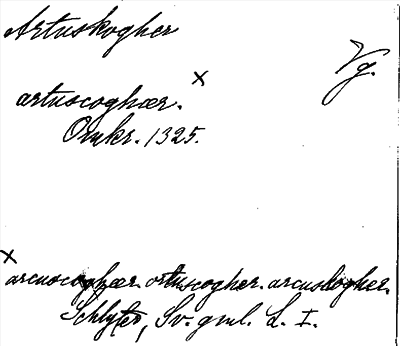 Artuskogher
Vg.
×
artuscoghær.
Omkr. 1325.
×
arcuscoghær. ortuscogher. arcuskogher.
Schlyter, Sv. gml. L. I.